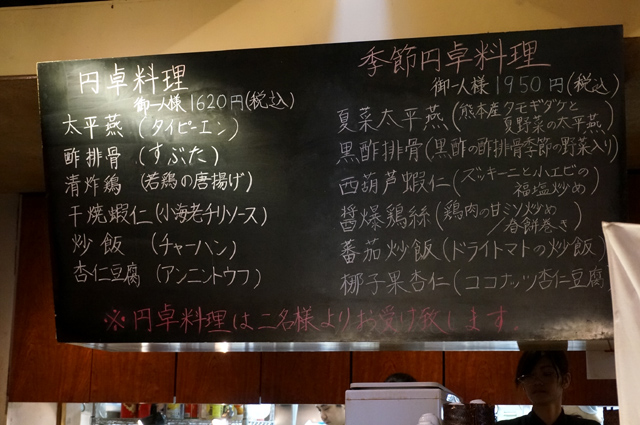 円卓料理
御一人様1620円(税込)
太平燕(タイピーエン)
酢排骨(すぶた)
清炸鶏(若鶏の唐揚げ)
干焼蝦仁(小海老チリソース)
炒飯(チャーハン)
杏仁豆腐(アンニントウフ)
季節円卓料理
御一人様1950円(税込)
夏菜太平燕(熊本産タモギダケと
夏野菜の太平燕)
黒酢排骨(黒酢の酢排骨季節の野菜入り)
西葫芦蝦仁(ズッキーニと小エビの
福塩炒め)
醤爆鶏絲(鶏肉の甘ミソ炒め/
春餅巻き)
蕃茄炒飯(ドライトマトの炒飯)
椰子果杏仁(ココナッツ杏仁豆腐)
※円卓料理は二名様よりお受け致します。